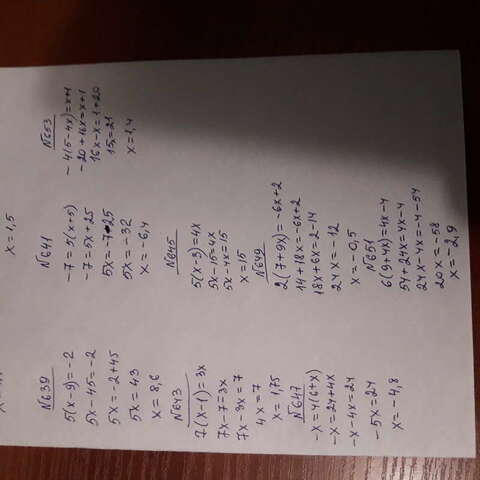 x = 1,5
N639
5(x-9) = -2
5x - 45 = -2
5x = -2 + 45
5x = 43
x = 8,6
N643
7(x-1) = 3x
7x - 7 = 3x
7x - 3x = 7
4x = 7
x = 1,75
N647
-x = 4(6+x)
-x = 24 + 4x
-x - 4x = 24
-5x = 24
x = -4,8
N641
-7 = 5(x+5)
-7 = 5x + 25
5x = -7-25
5x = -32
x = -6,4
N645
5(x-3) = 4x
5x - 15 = 4x
5x - 4x = 15
x = 15
N649
2(7+9x) = -6x + 2
14 + 18x = -6x + 2
18x + 6x = 2 - 14
24x = -12
x = -0,5
N651
6(9+4x) = 4x - 4
54 + 24x = 4x - 4
24x - 4x = -4 - 54
20x = -58
x = -2,9
N653
-4(5-4x) = x+1
-20 + 16x = x+1
16x - x = 1 + 20
15 = 21
x = 1,4